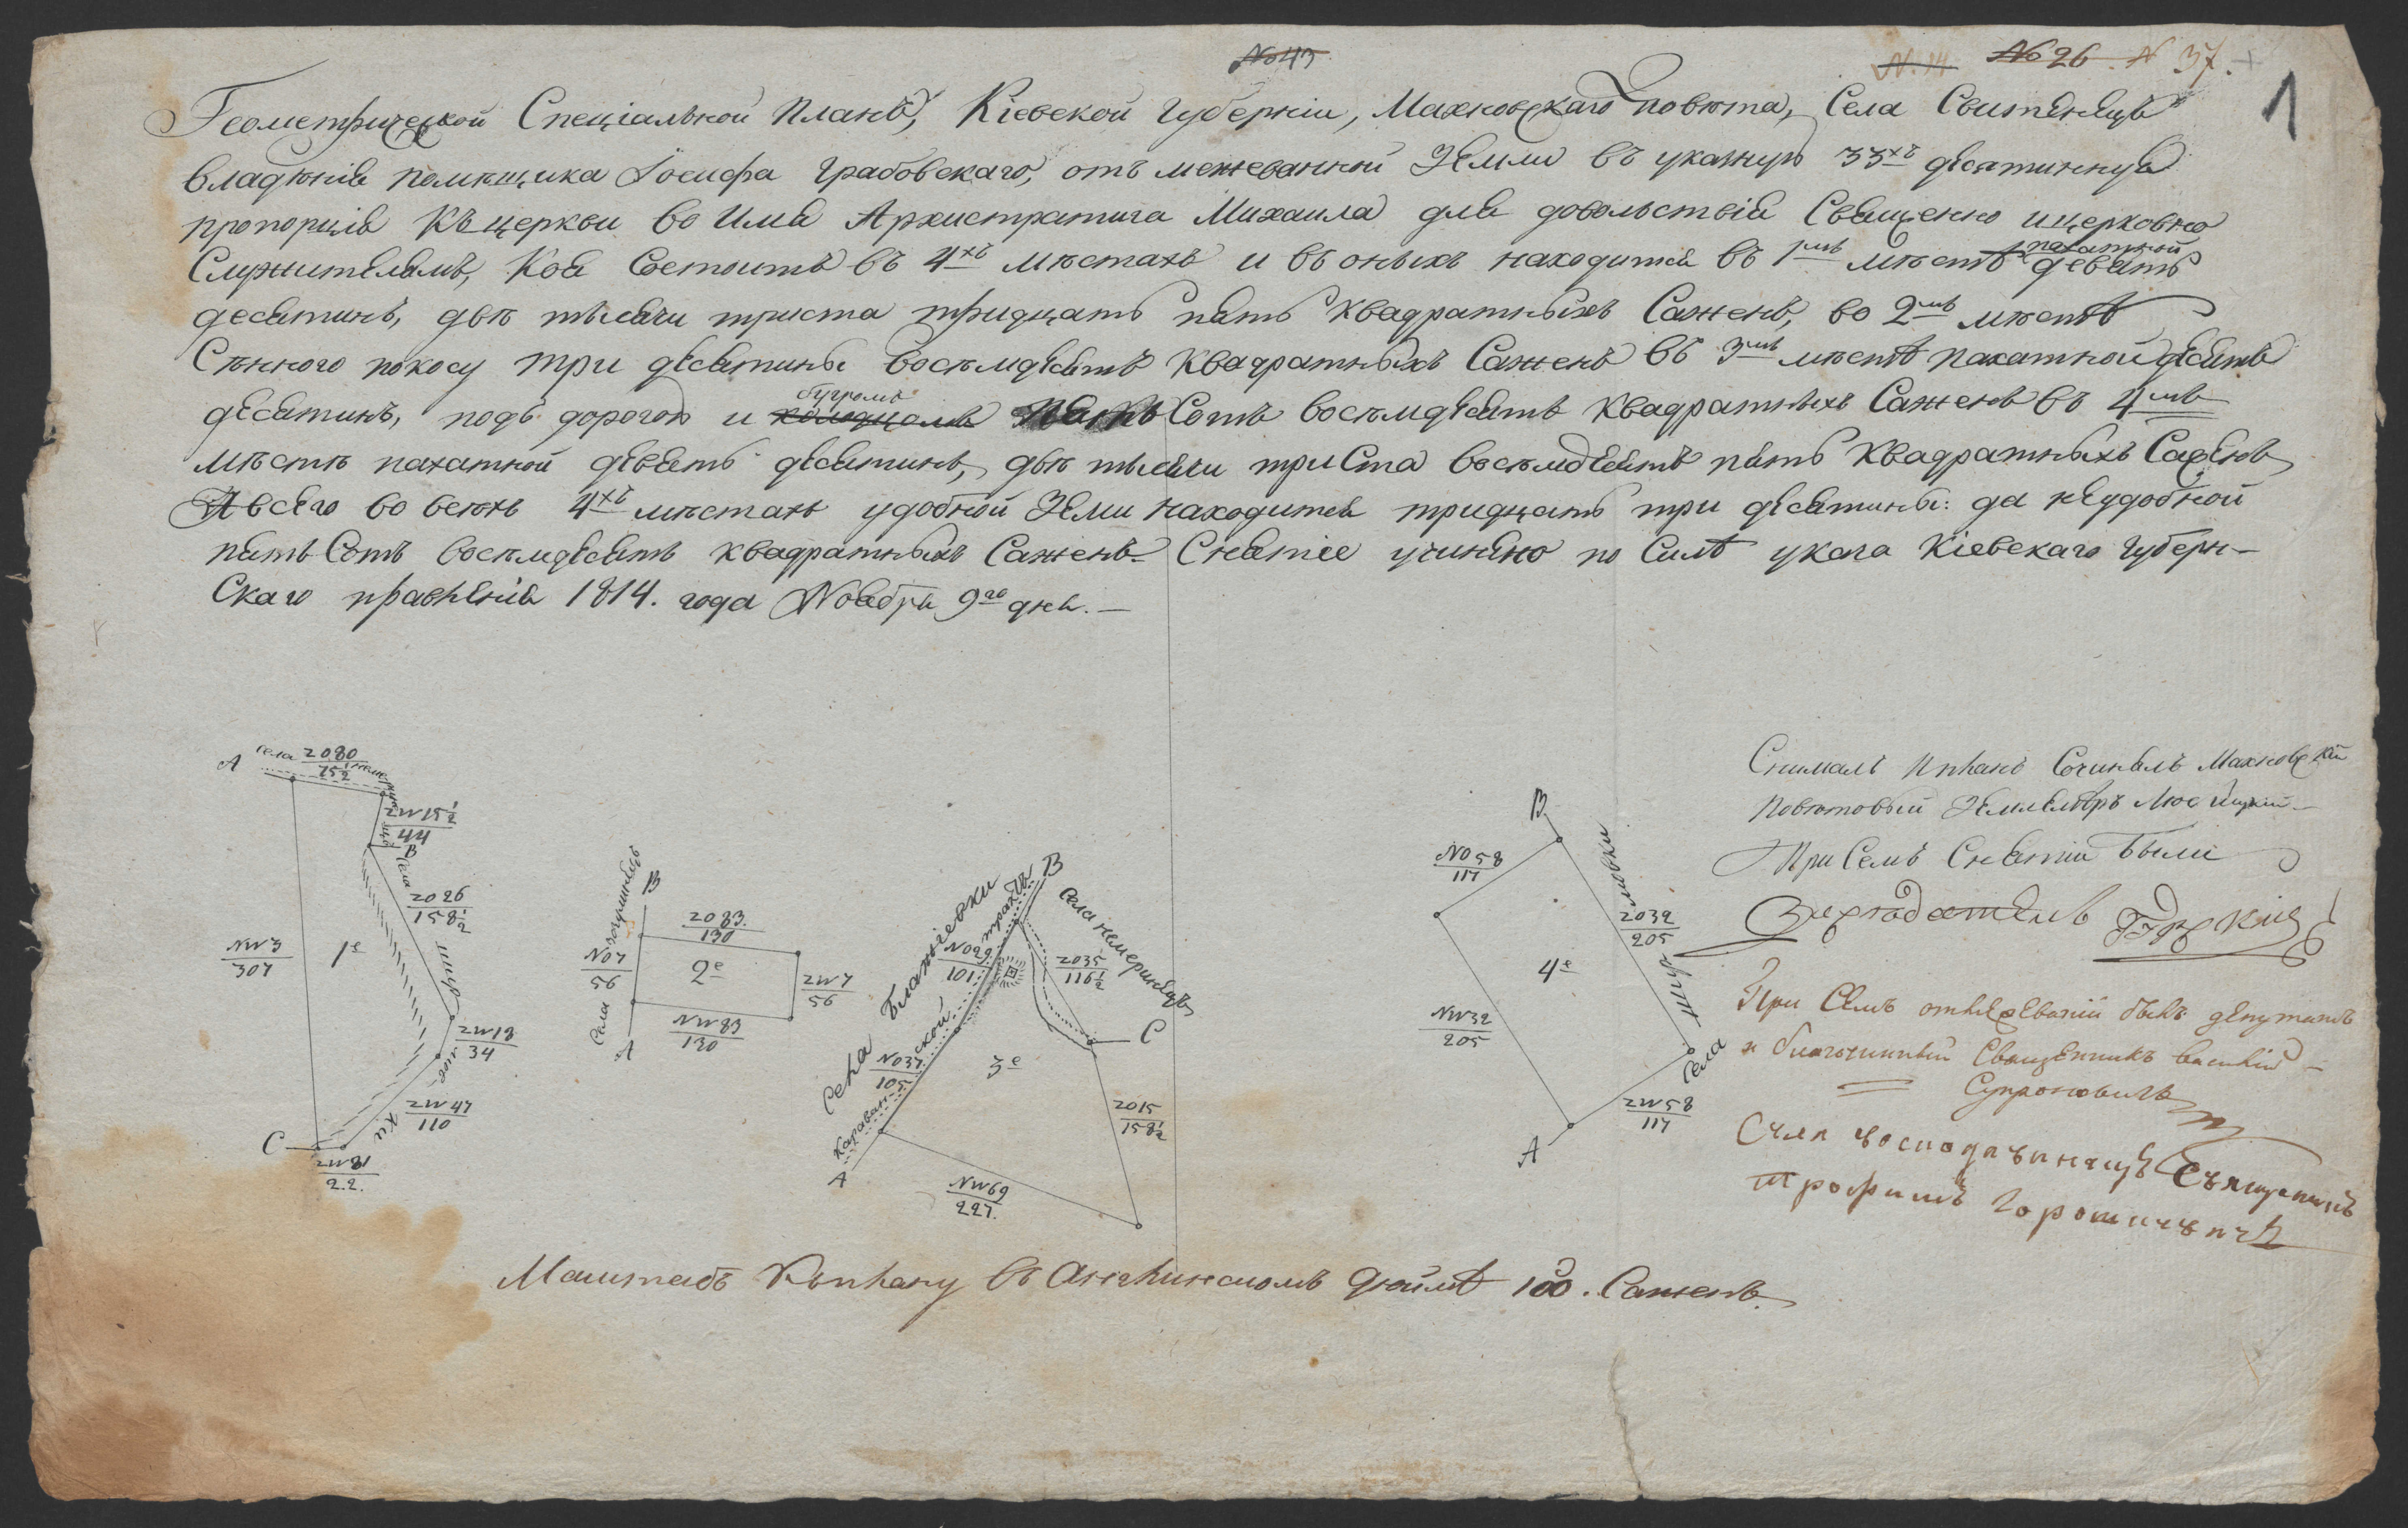 № 43
№ 26. № 37.
1
Геометрической Специальной Планъ, Кіевской губерніи, Махновскаго повѣта, Села Свитинецъ
владѣнія помѣщика Іосифа Грабовскаго, отъ межеванной Земли въ указную 33хъ десятинную
пропорцію Къ церкви во Имя Архистратига Михаила для довольствія Священно и церковно
Служителямъ, Коя Состоитъ въ 4хъ мѣстахъ и въ оныхъ находится въ 1мъ мѣстѣ пахатной девять
десятинъ, двѣ тысячи триста тридцать пять квадратныхъ Саженъ, во 2мъ мѣстѣ
Сѣнного покосу три десятины восѣмдесятъ Квадратныхъ Саженъ въ 3мъ мѣстѣ пахатной десять
десятинъ, подъ дорогою и колодцомъ бугромъ пять Сотъ восѣмдесятъ Квадратныхъ Саженъ въ 4мъ
мѣстѣ пахатной девять десятинъ, двѣ тысячи триСта восѣмдесятъ пять Квадратныхъ Саженъ
А всего во всѣхъ 4хъ мѣстахъ удобной Земли находится тридцать три десятины: да неудобной
пять Сотъ восѣмдесятъ квадратныхъ Саженъ. Снятіе учинено по Силѣ указа Кіевскаго Губерн-
Скаго правленія 1814. года Ноября 9го дня.
A села 2080 / 75½
ZW15½ / 44
B Села
2026 / 158½
NW3 / 307
1е
ZW18 / 34
ZW47 / 110
C
ZW81 / 22.
B
2083. / 130
N07 / 56
2е
ZW7 / 56
Села
A
NW83 / 130
Села Бланіевки
трактъ B
Села немеринецъ
N029 / 101
2035 / 116½
C
N037 / 105
Караван-ской
3е
2015 / 158½
A
NW69 / 227.
B
N058 / 117
2032 / 205
4е
NW32 / 205
Села
ZW58 / 117
A
Снималъ и планъ Сочинялъ Махновскій
Повѣтовый Землемѣръ
При Семъ Снятіи были
При Семъ отмежеваніи былъ депутатъ
и благочинный Священникъ василій
Супроновичъ
Села Священникъ
трофимъ
Маштабъ Къ плану въ Англинскомъ дюймѣ 100. Саженъ.